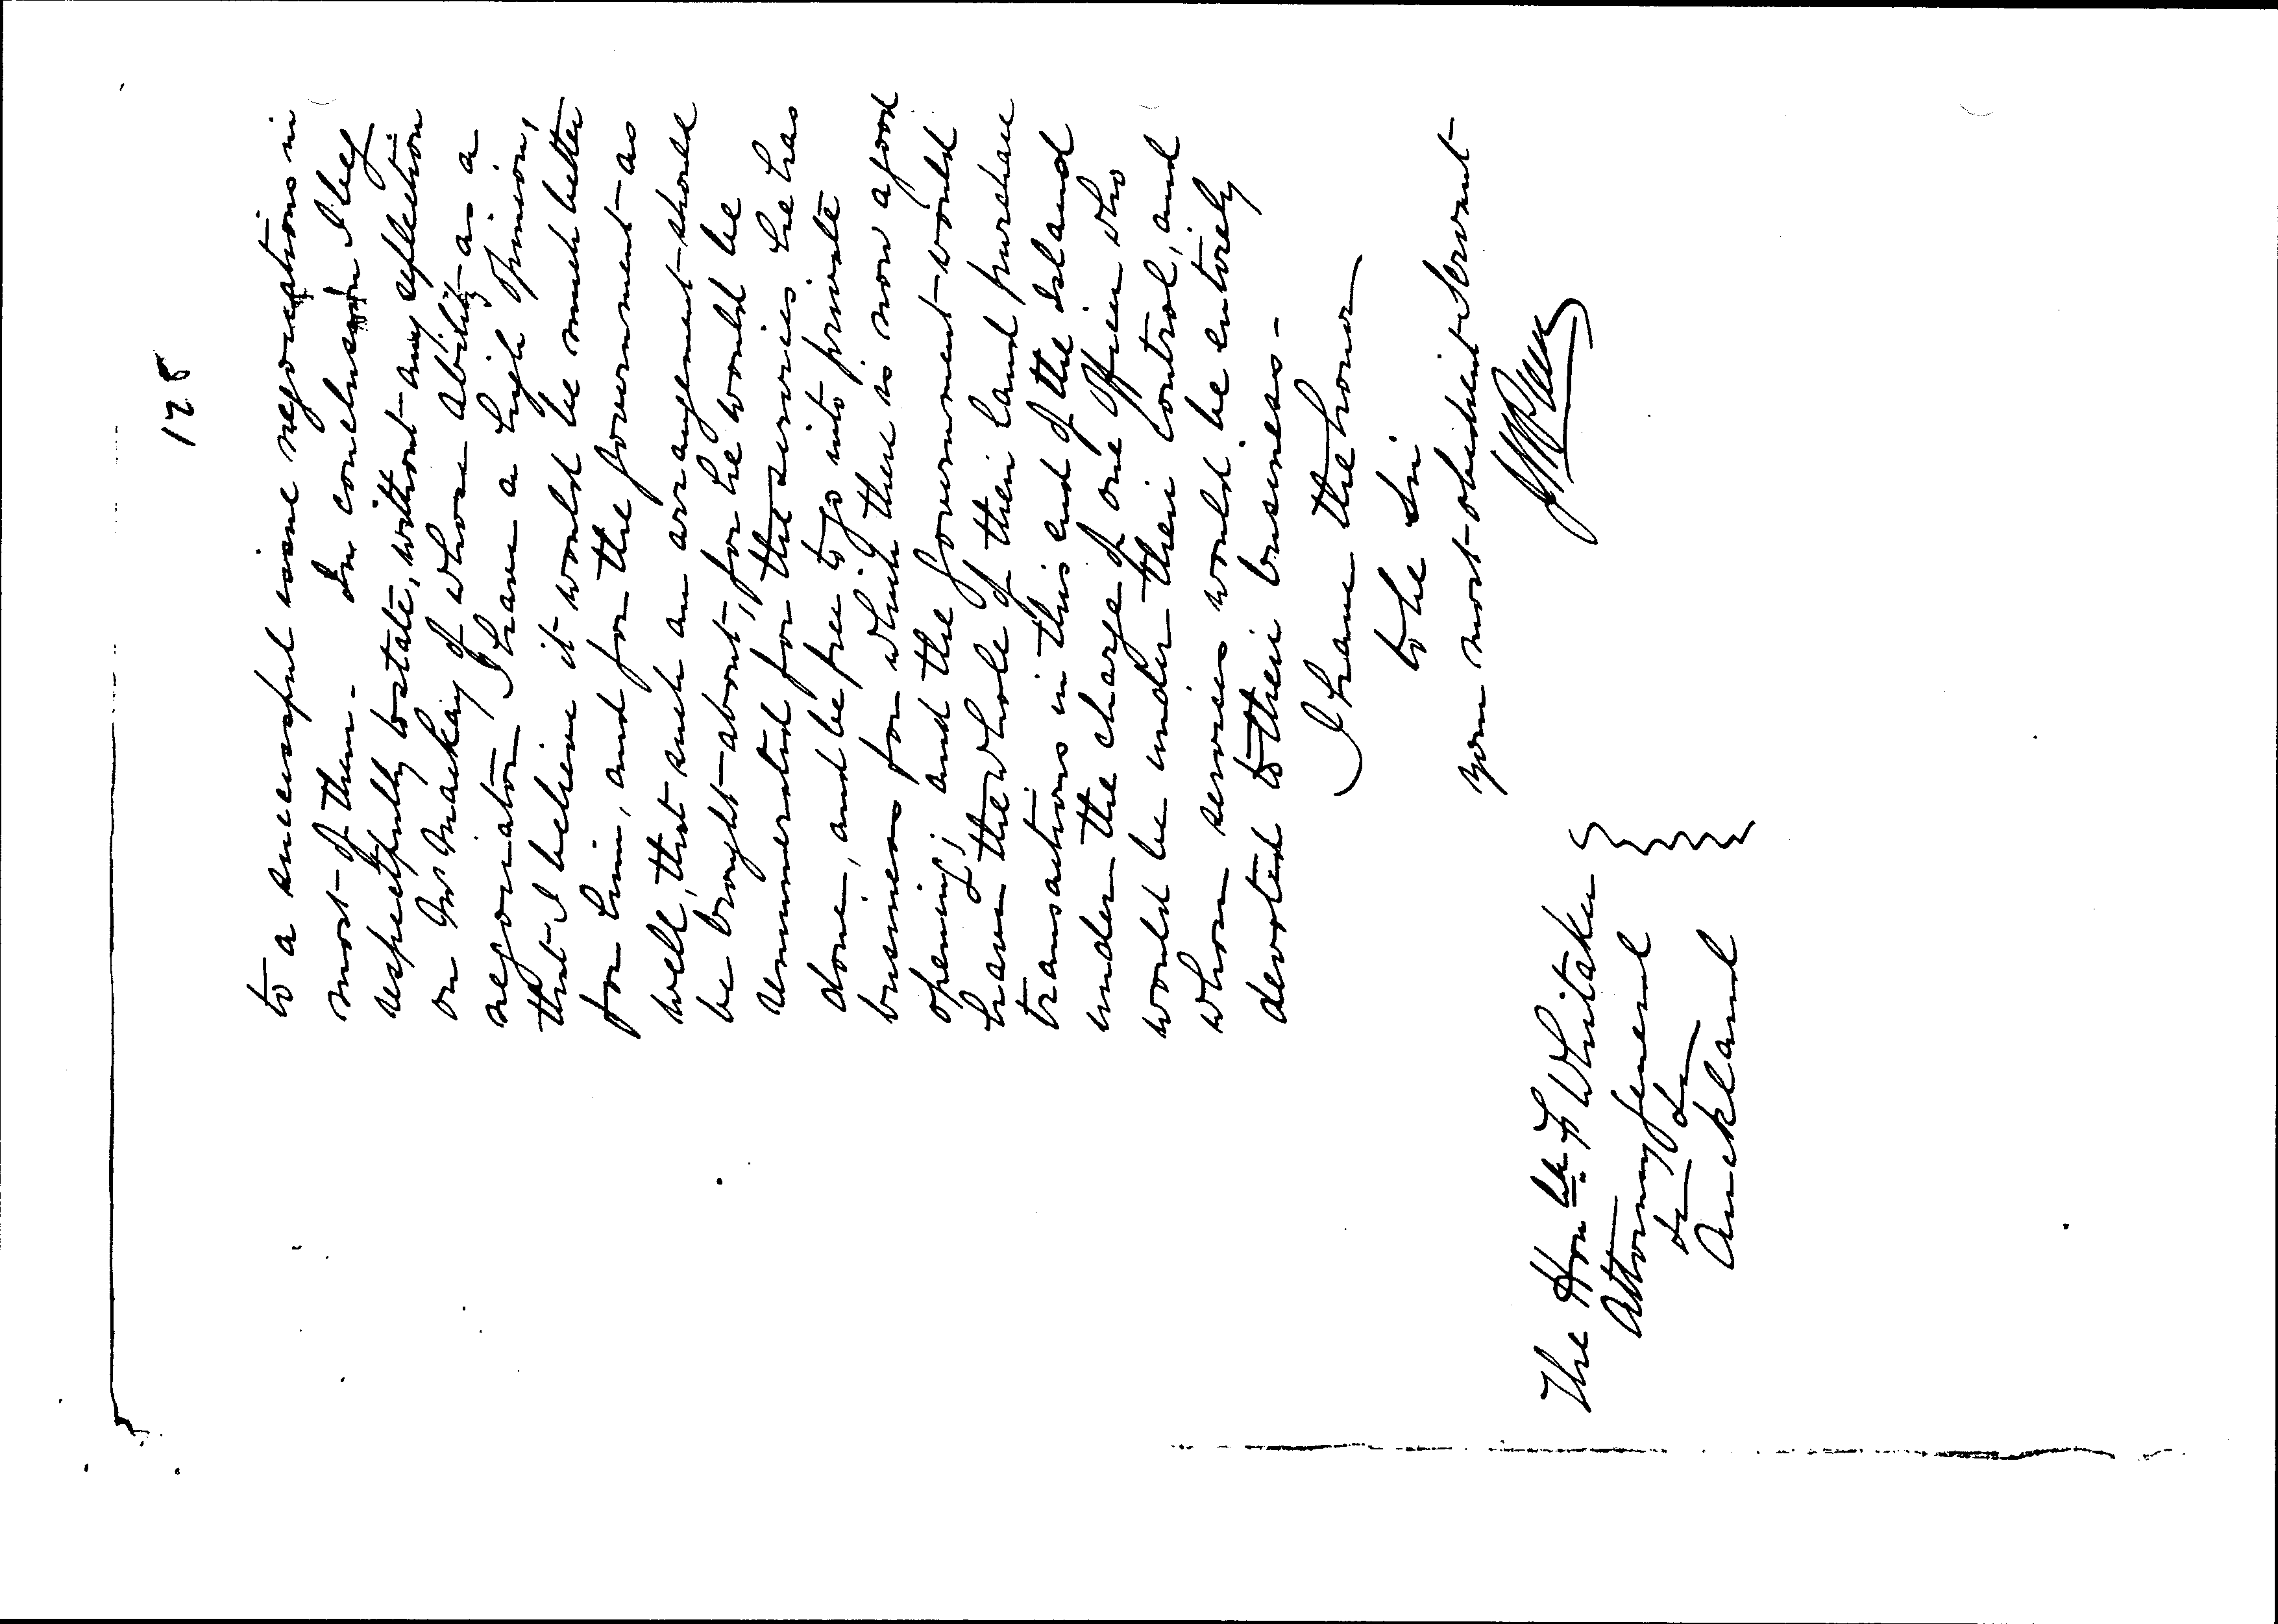 128
to a successful issue negociations in
most of them. In conclusion I beg
respectfully to state, without any reflection
on Mr Mackay of whose ability as a
negociator I have a high opinion,
that I believe it would be much better
for him, and for the government as
well, that such an arrangement should
be brought about, for he would be
remunerated for the services he has
done, and be free to go into private
business for which there is now a good
opening; and the Government would
have the whole of their land purchase
transactions in this end of the Island
under the charge of one Officer who
would be under their control, and
whose services would be entirely
devoted to their business.
I have the honor
to be Sir
your most obedient Servant
The Honble F Whitaker
Attorney General
&c &c
Auckland